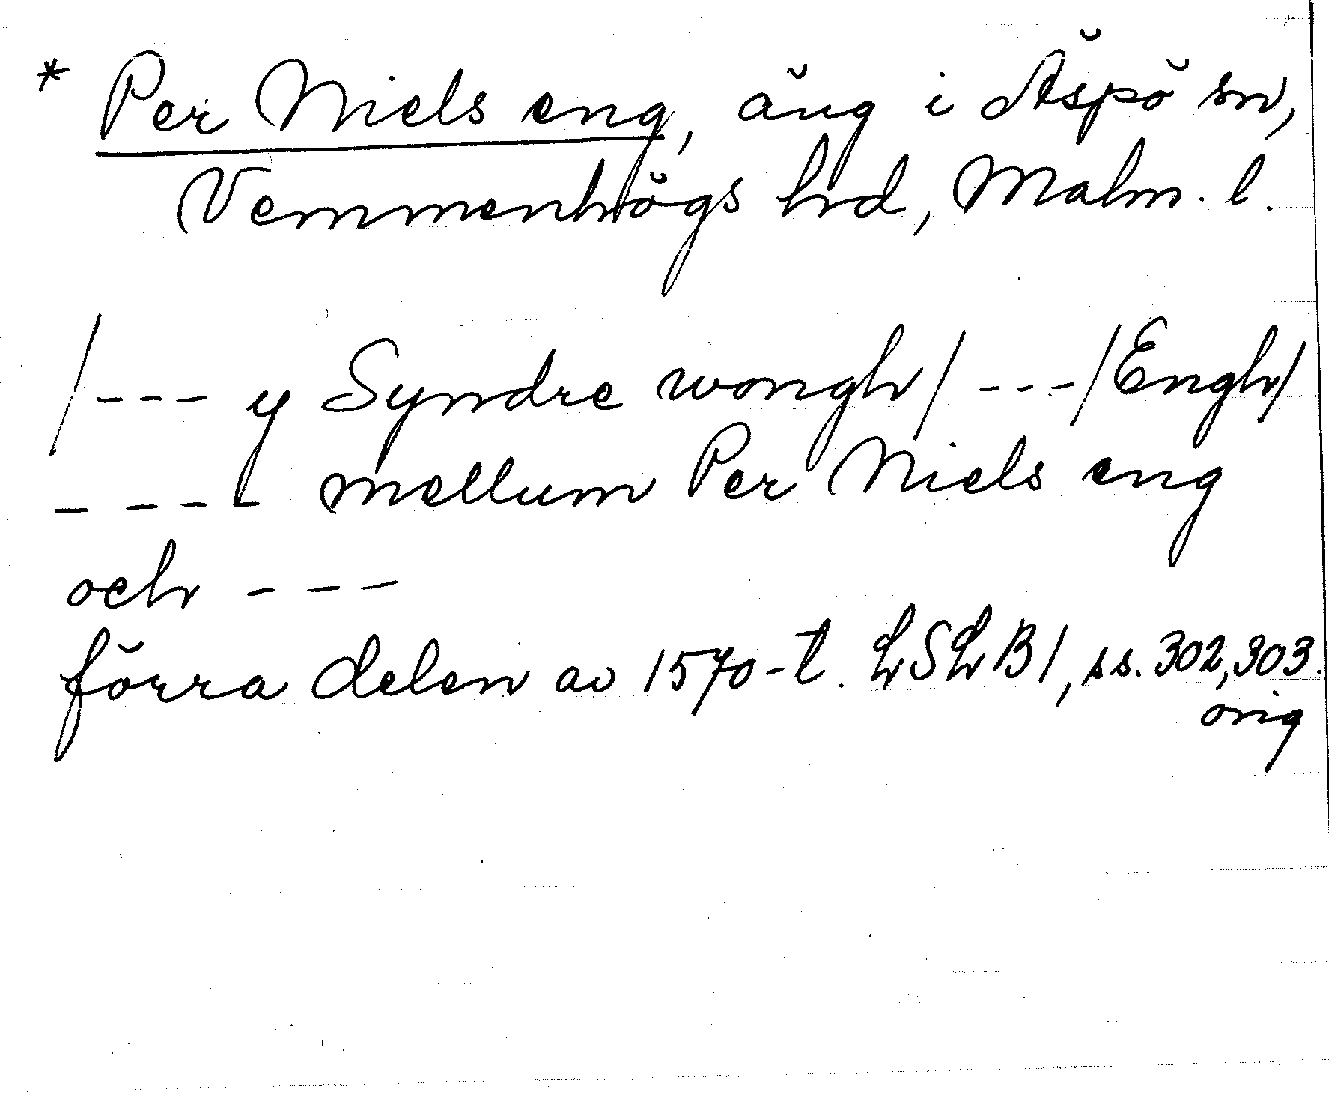 * Per Niels eng, äng i Äspö sn,
Vemmenhögs hd, Malm. l.
/--- y Syndre wongh/ ---/Engh/
---- mellum Per Niels eng
och ---
förra delen av 1570-t. LSLB1, ss. 302, 303.
orig